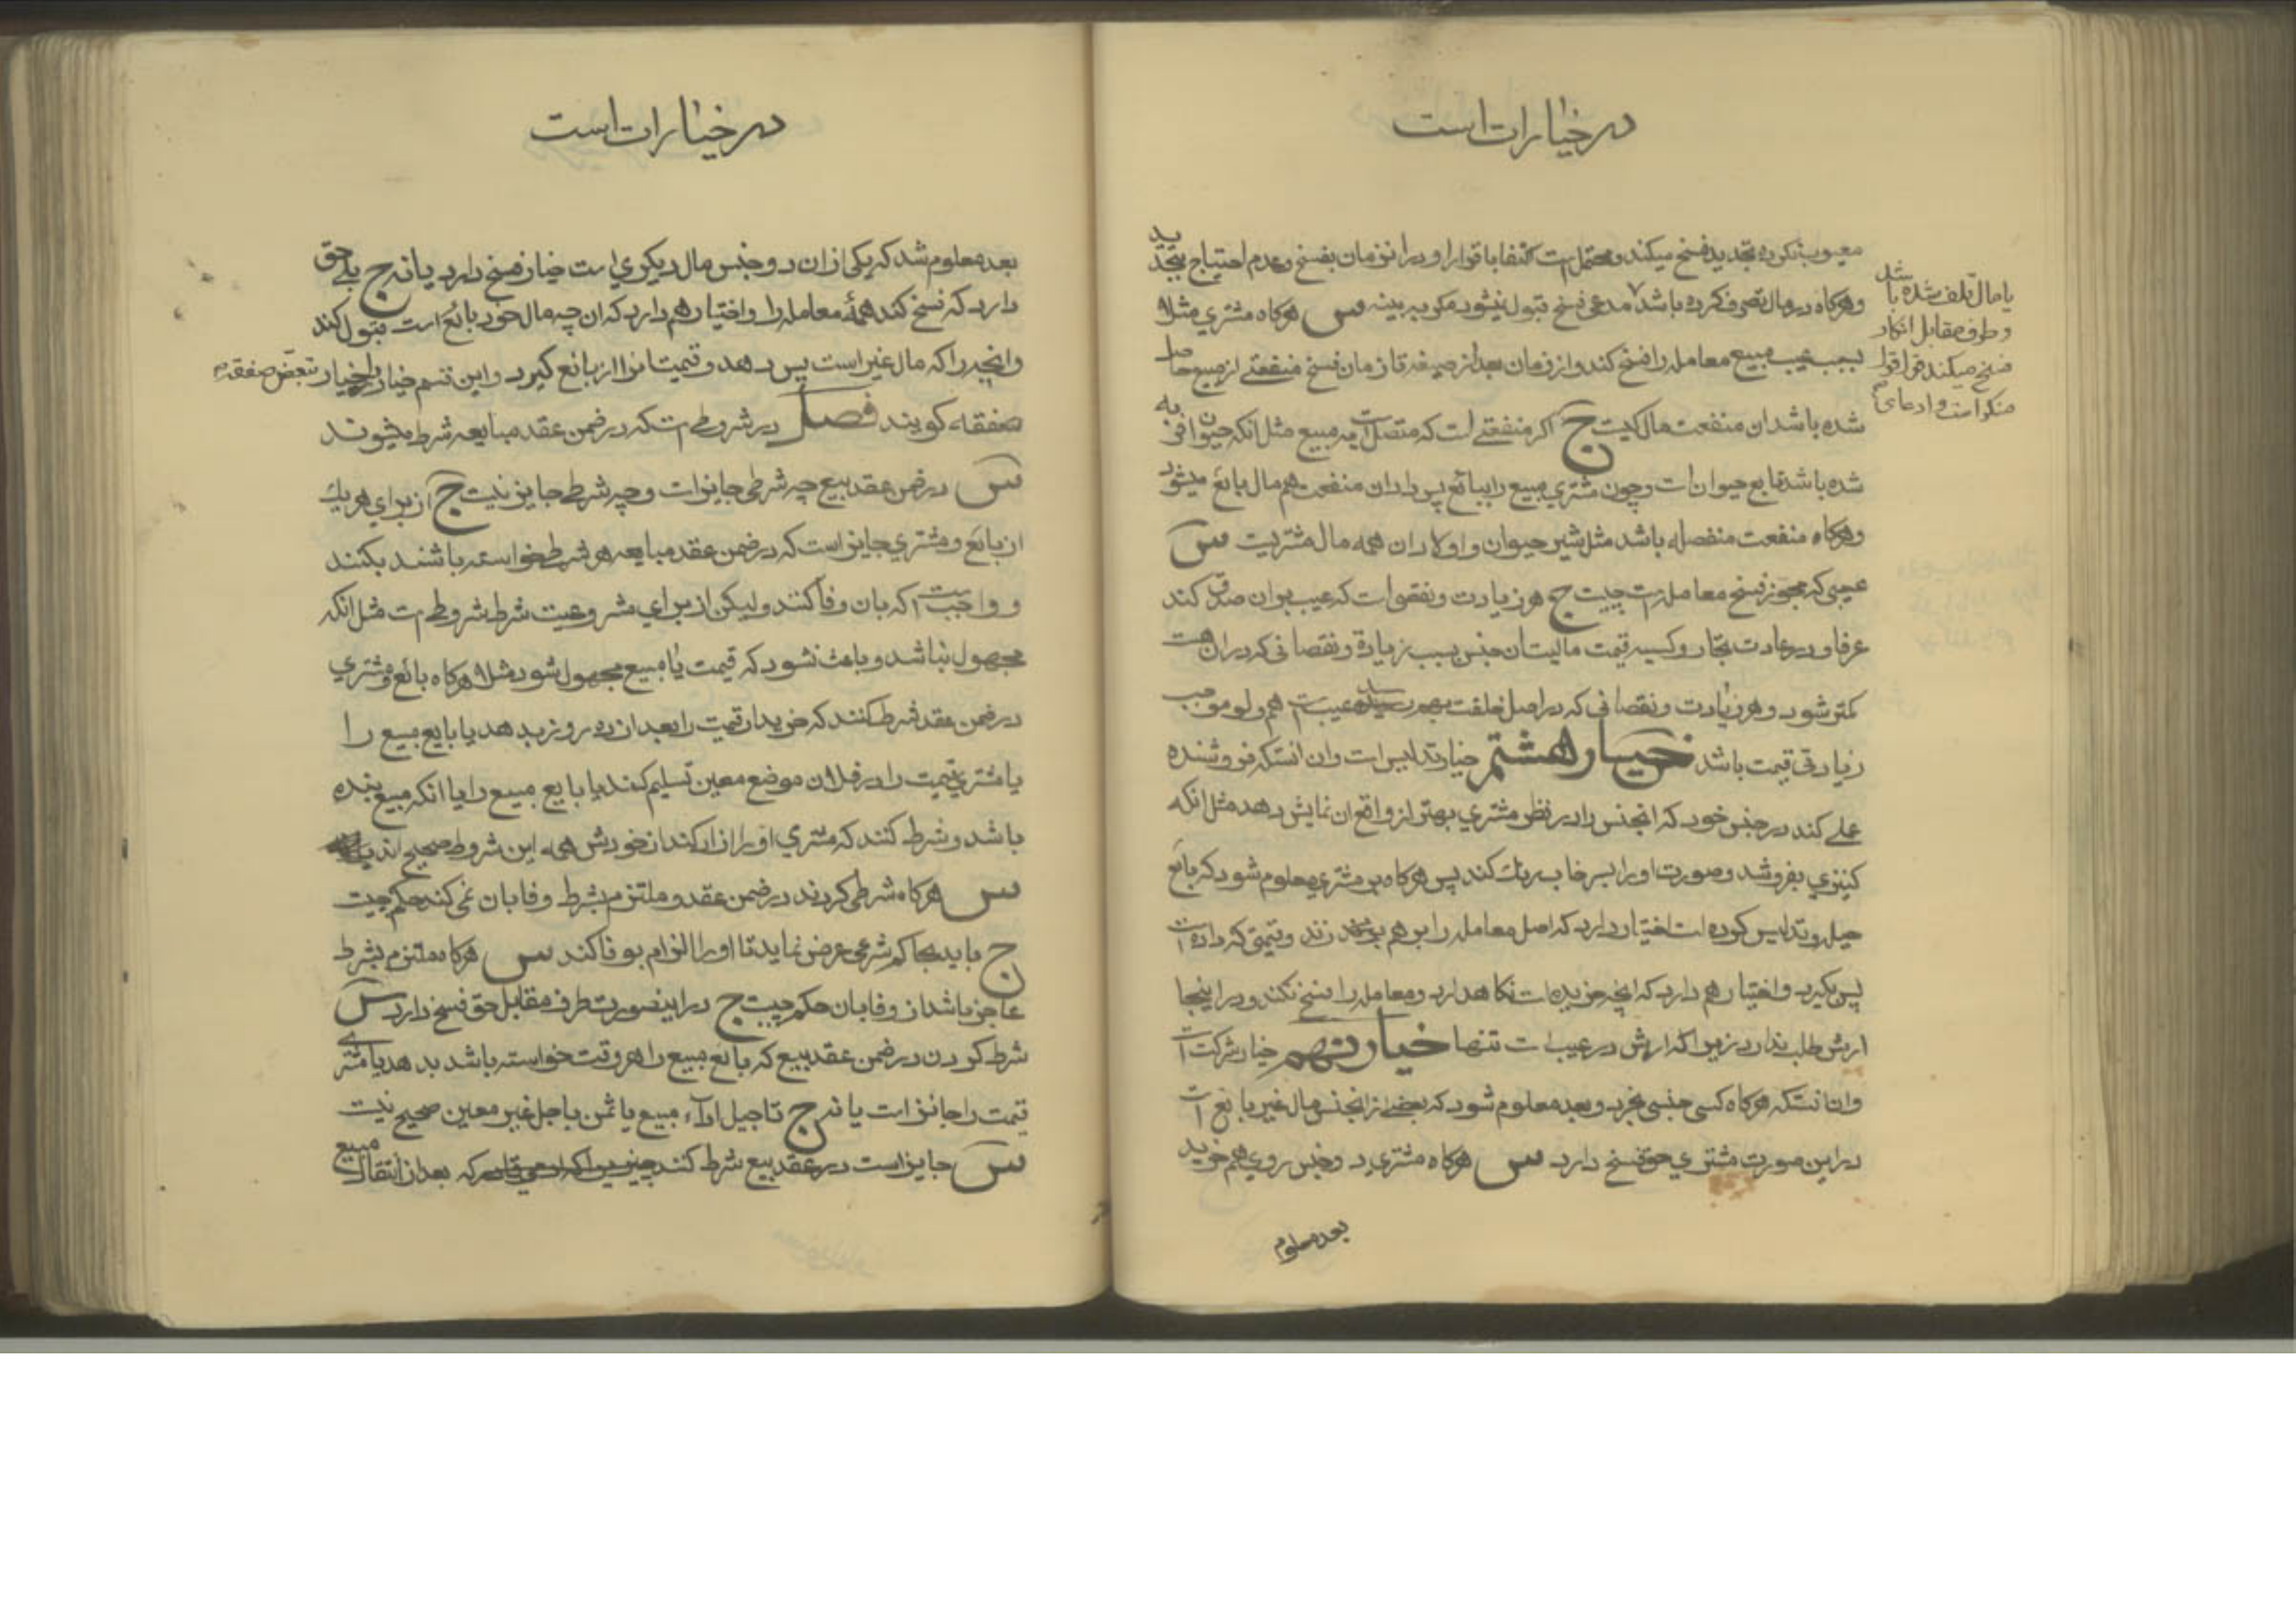 در خیارات است
معیوب نکرده تجدید فسخ میکند و محتمل است اکتفا باقرار او در انزمان بفسخ و عدم احتیاج بتجدید
وهرکاه در مال تصرف کرده باشد مدعی فسخ قبول نیشود مکر ببینه س هرکاه مشتری مثلا
بسبب عیب مبیع معامله را فسخ کند و از زمان بعد از صیغه تا زمان فسخ منفعتی از مبیع حاصل
شده باشد ان منفعت مال کیست ج اکر منفعتی است که متصل است به مبیع مثل انکه حیوان فربه
شده باشد تابع حیوان است و چون مشتری مبیع را ببائع پس داد ان منفعت هم مال بائع میشود
وهرکاه منفعت منفصله باشد مثل شیر حیوان و اولاد ان همه مال مشتریست س
عیبی که مجوز فسخ معامله است چیست ج هر زیادت و نقصی است که عیب بر ان صدق کند
عرفا و در عادت تجار و کسبه قیمت مالیت ان جنس بسبب زیادة و نقصانی که در ان هست
کمتر شود و هر زیادت و نقصانی که در اصل خلقت بهم رسیده عیب است هم ولو موجب
زیادتی قیمت باشد خیار هشتم خیار تدلیس است وان انستکه فروشنده
عملی کند در جنس خود که انجنس را در نظر مشتری بهتر از واقع ان نمایش دهد مثل انکه
کنیزی بفروشد و صورت او را بسرخاب رنك کند پس هرکاه بر مشتری معلوم شود که بائع
حیله و تدلیس کرده است اختیار دارد که اصل معامله را بر هم زند و قیمتی که داده است
پس بکیرد و اختیار هم دارد که انچه خریده است نکاهدارد و معامله را فسخ نکند و در اینجا
ارش طلب ندارد زیرا که ارش در عیب است تنها خیار نهم خیار شرکت است
وان انستکه هرکاه کسی جنسی بخرد و بعد معلوم شود که بعضی از انجنس مال غیر بایع است
در این صورت مشتری حق فسخ دارد س هرکاه مشتری دو جنس روی هم خرید
بعد معلوم
یا مال تلف شده باشد
و طرف مقابل انکار
فسخ میکند قول قول
منکر است و ادعای
در خیارات است
بعد معلوم شد که یکی از ان دو جنس مال دیکری است خیار فسخ دارد یا نه ج بلی حق
دارد که فسخ کند همهٔ معامله را و اختیار هم دارد که ان چه مال خود بائع است قبول کند
وانچه را که مال غیر است پس دهد و قیمت انرا از بائع کیرد و این قسم خیار را خیار تبعض صفقه
صفقه کویند فصل در شروطی است که در ضمن عقد مبایعه شرط میشوند
س در ضمن عقد بیع چه شرطی جایز است و چه شرطی جایز نیست ج از برای هریك
از بائع و مشتری جایز است که در ضمن عقد مبایعه هر شرط خواسته باشند بکنند
و واجب است که بان وفا کنند و لیکن از برای مشروعیت شرط شروطی است مثل انکه
مجهول نباشد و باعث نشود که قیمت یا مبیع مجهول شود مثلا هرکاه بائع و مشتری
در ضمن عقد شرط کنند که خریدار قیمت را بعد از ده روز بدهد یا بایع مبیع را
یا مشتری قیمت را در فلان موضع معین تسلیم کند یا بایع مبیع را یا انکه مبیع بنده
باشد و شرط کنند که مشتری او را ازاد کند از خودش همه این شروط صحیح اند
س هرکاه شرطی کردند در ضمن عقد و ملتزم بشرط وفا بان نمی کند حکم چیست
ج باید بحاکم شرعی عرض نماید تا او را الزام بوفا کند س هرکاه ملتزم بشرط
عاجز باشد از وفا بان حکم چیست ج در اینصورت طرف مقابل حق فسخ دارد س
شرط کردن در ضمن عقد بیع که بائع مبیع را هر وقت خواسته باشد بدهد یا مشتری
قیمت را جائز است یا نه ج تاجیل اداء مبیع یا ثمن باجل غیر معین صحیح نیست
س جایز است در عقد بیع شرط کنند که بعد از انتقال مبیع